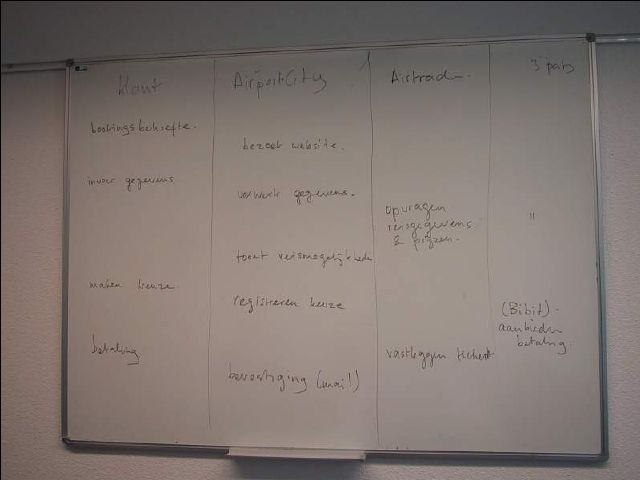 klant
bookingsbehoefte.
invoer gegevens
maken keuze
betaling
AirportCity
bezoek website.
verwerk gegevens.
toont reismogelijkheden
registreren keuze
bevestiging (mail)
Airtrade.
opvragen
reisgegevens
& prijzen.
vastleggen ticket
"
(Bibit).
aanbieden
betaling.